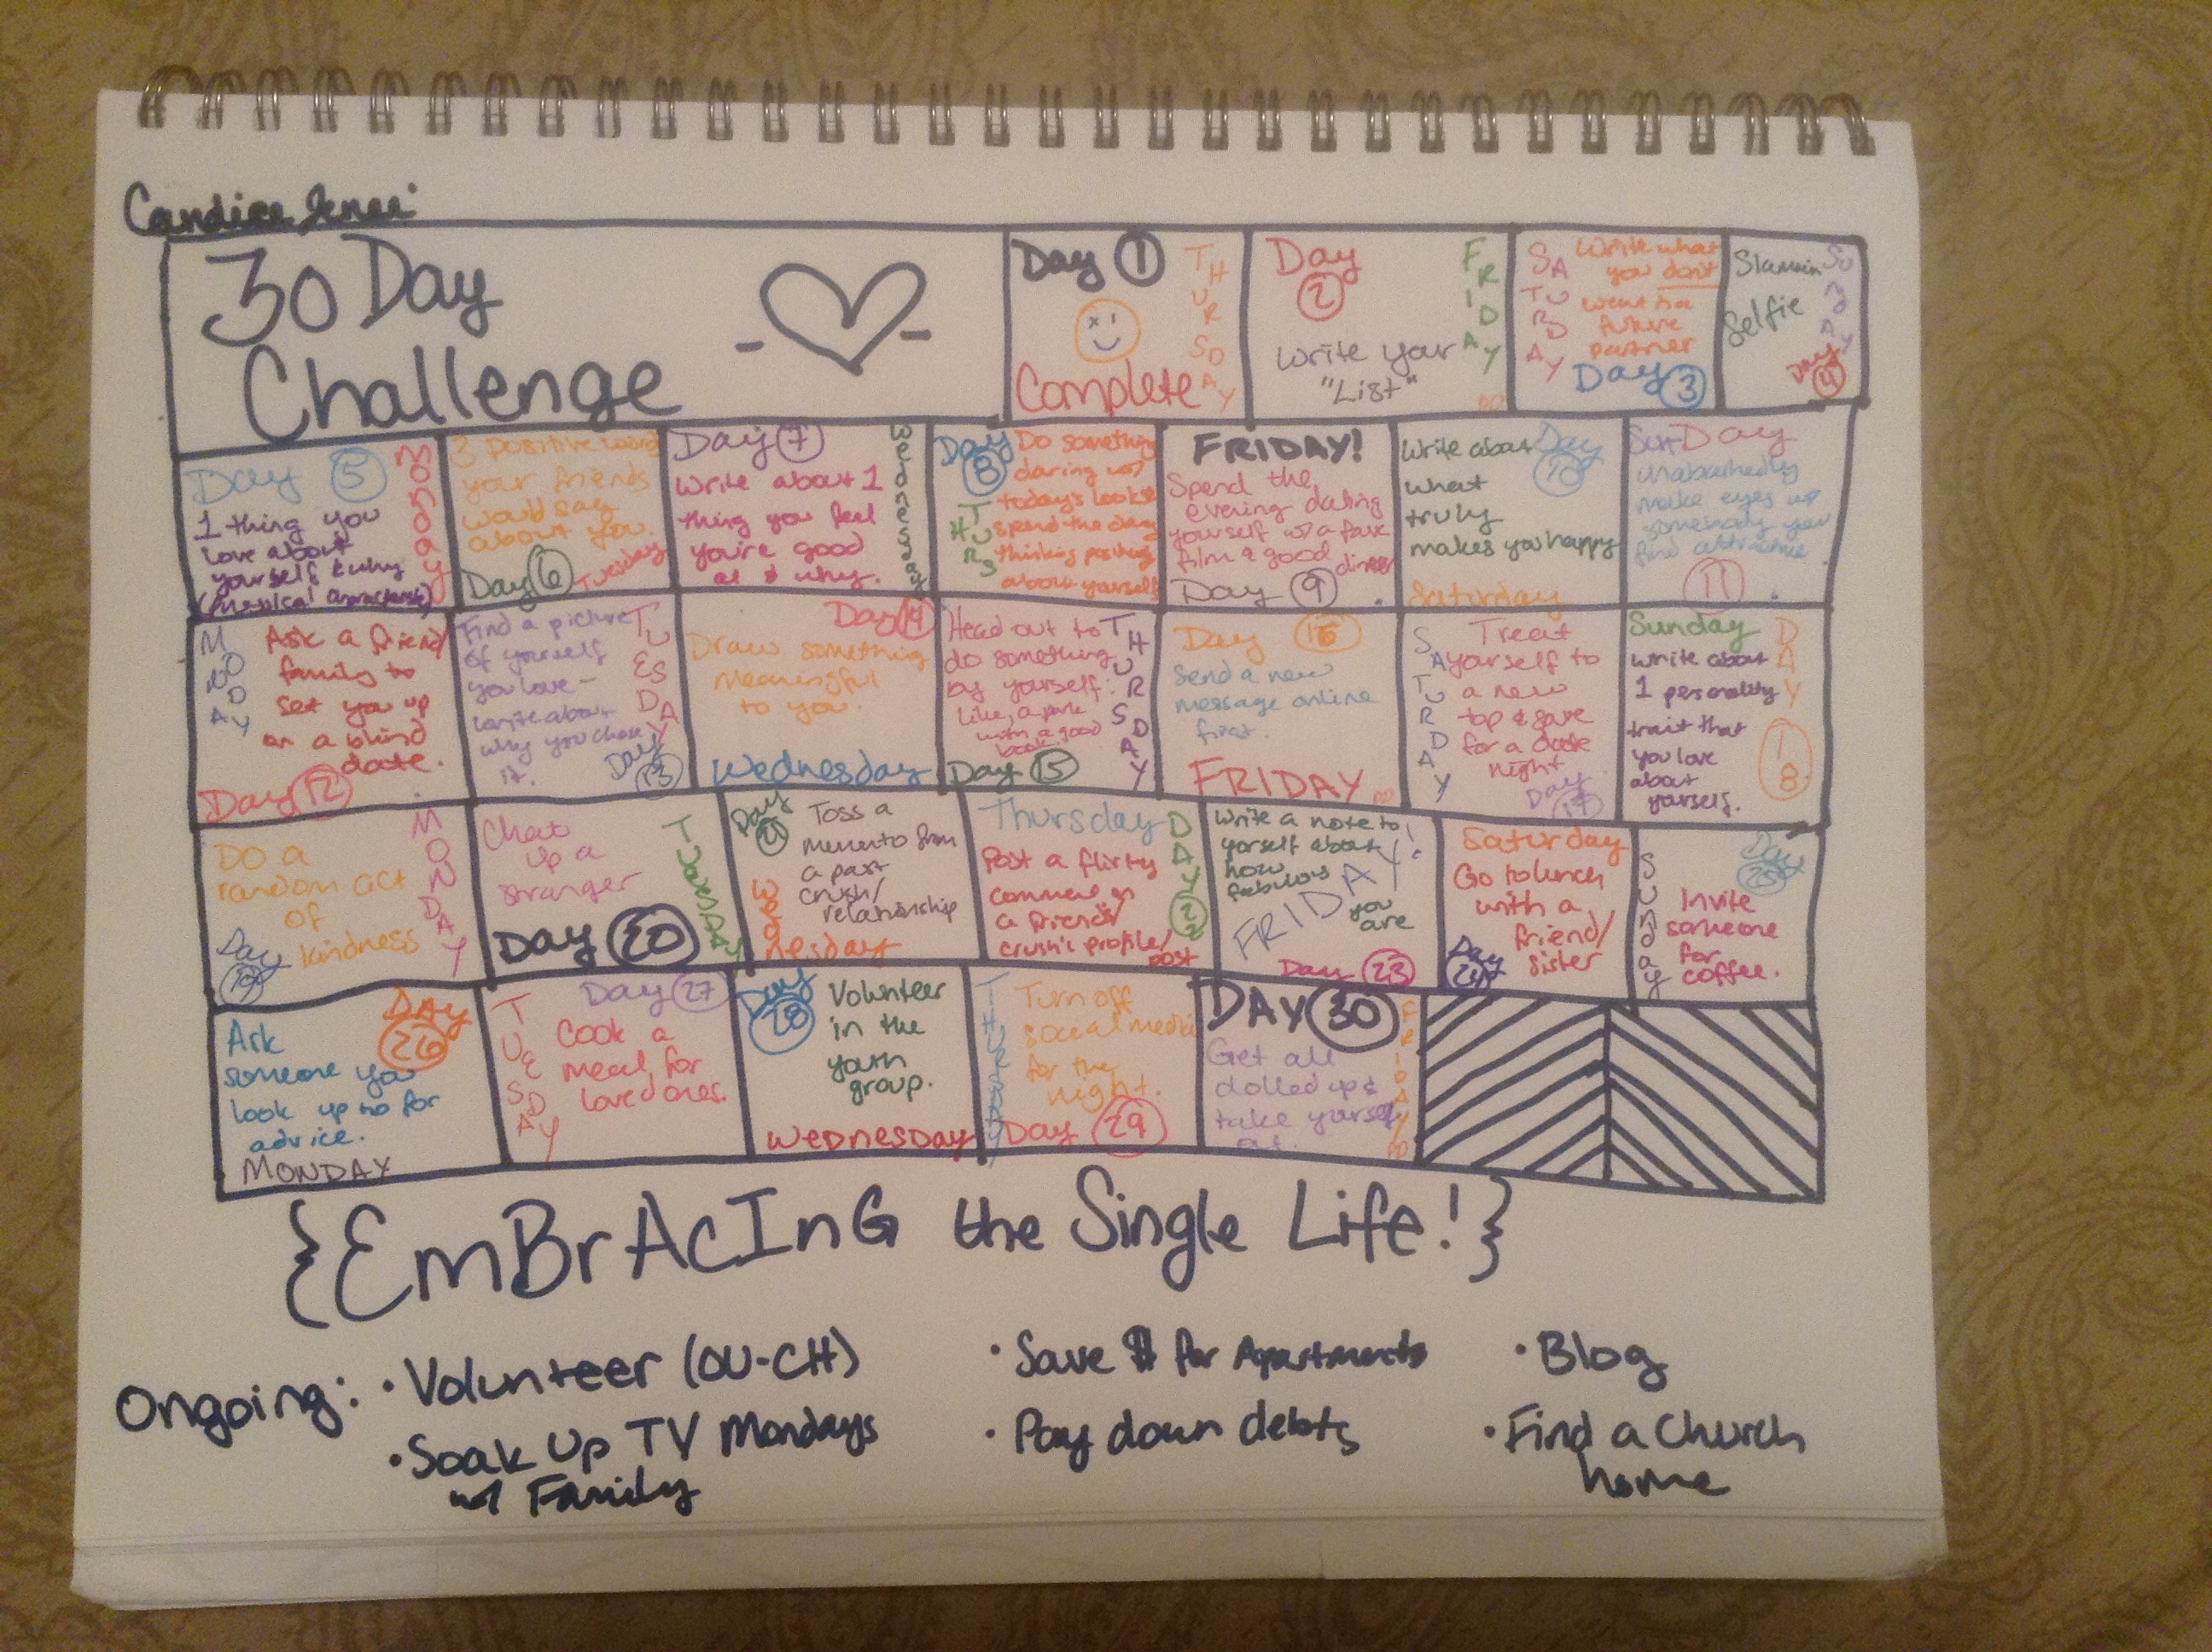 Candice
30 Day
Challenge
Day 1
THURSDAY
Complete
Day
2
FRIDAY
Write your
"List"
SATURDAY
Write what
you don't
want in a
future
partner
Day 3
SUNDAY
Slammin
Selfie
Day
4
Day 5
Monday
1 thing you
love about
yourself & why
(physical characteristic)
3 positive words
your friends
would say
about you.
Day 6 Tuesday
Day 7
Wednesday
Write about 1
thing you feel
you're good
at & why.
Day
8
THURS
Do something
daring w/
today's look &
spend the day
thinking positively
about yourself
FRIDAY!
Spend the
evening dating
yourself w/ a fave
film & good dinner
Day 9
Write about Day
10
what
truly
makes you happy
Saturday
SunDay
Unabashedly
make eyes up
somebody you
find attractive
11
MONDAY
Ask a friend/
family to
set you up
on a blind
date.
Day 12
Find a picture
of yourself
you love -
write about
why you chose
it.
TUESDAY
Day
13
Day 14
Draw something
meaningful
to you.
Wednesday
Head out to
do something
by yourself:
Like, a park
with a good
book
THURSDAY
Day 15
Day 16
Send a new
message online
first.
FRIDAY
SATURDAY
Treat
yourself to
a new
top & save
for a date
night
Day
17
Sunday
DAY
18
write about
1 personality
trait that
you love
about
yourself.
MONDAY
Do a
random act
of
kindness
Day
19
Chat
up a
stranger
TUESDAY
Day 20
Day
21
Toss a
memento from
a past
crush/
relationship
Wednesday
Thursday
DAY 22
Post a flirty
comment on
a friend's/
crush's profile/
post
Write a note to
yourself about
how
fabulous
you
are
FRIDAY!
Day 23
Saturday
Go to lunch
with a
friend/
sister
Day
24
Sunday
Day
25
Invite
someone
for
coffee.
DAY
26
Ask
someone you
look up to for
advice.
MONDAY
TUESDAY
Day 27
Cook a
meal for
loved ones.
Day
28
Volunteer
in the
youth
group.
WEDNESDAY
THURSDAY
Turn off
social media
for the
night.
Day 29
DAY 30
FRIDAY
Get all
dolled up &
take yourself
{EmBrAcInG the Single Life!}
Ongoing: • Volunteer (OU-CH)
• Soak Up TV Mondays
w/ Family
• Save $ for Apartments
• Pay down debts
• Blog
• Find a Church
home